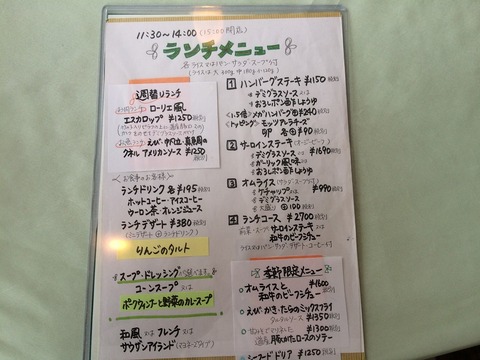 11:30～14:00 (15:00閉店)
ランチメニュー
各ライス又はパン・サラダ・スープ付
週替りランチ
ローリエ風
エスカロップ ¥1250
クネル アメリカンソース ¥1250
ランチドリンク 各¥195
ホットコーヒー・アイスコーヒー
ウーロン茶・オレンジジュース
ランチデザート ¥380
(ミニデザート + ランチドリンク)
りんごのタルト
スープ・ドレッシング
コーンスープ
又は
ポークウィンナーと野菜のカレースープ
和風 又は フレンチ 又は
サウザンアイランド
1 ハンバーグステーキ ¥1150
デミグラスソース 又は
おろしポン酢しょうゆ
<1.5倍>メガハンバーグ +¥240
<トッピング> モッツァレラチーズ
卵 各+¥90
2 サーロインステーキ
デミグラスソース 又は ¥1690
ガーリック風味 又は
おろしポン酢しょうゆ
3 オムライス (サラダ・スープ付)
ケチャップ 又は ¥990
デミグラスソース 又は
大盛り +100
4 ランチコース ¥2700
前菜・スープ サーロインステーキ
又は 和牛のビーフシチュー
ライス又はパン・サラダ・デザート・コーヒー付
季節限定メニュー
オムライスと ¥1600
和牛のビーフシチュー
えび・かき・たらのミックスフライ
タルタルソース ¥1350
¥1300
豚肩ロースのソテー
シーフードドリア ¥1250